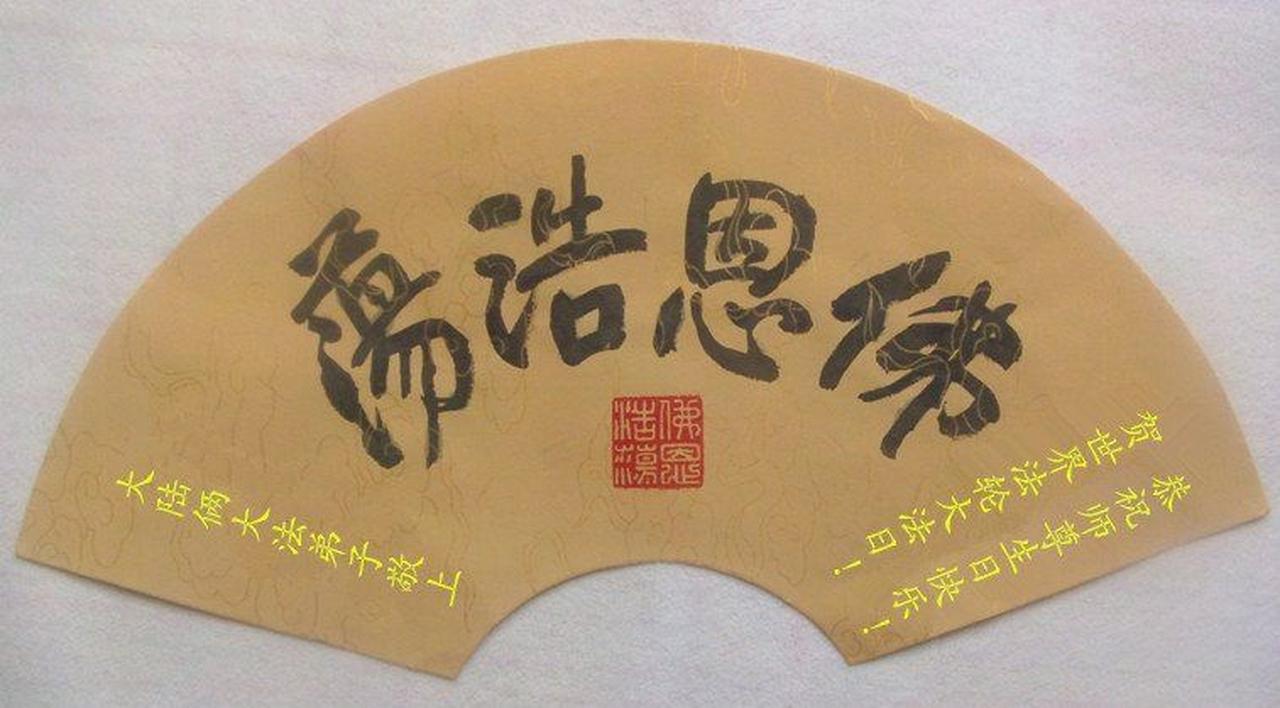 佛恩浩蕩
佛恩
浩蕩
恭祝师尊生日快乐!
贺世界法轮大法日!
大陆俩大法弟子敬上